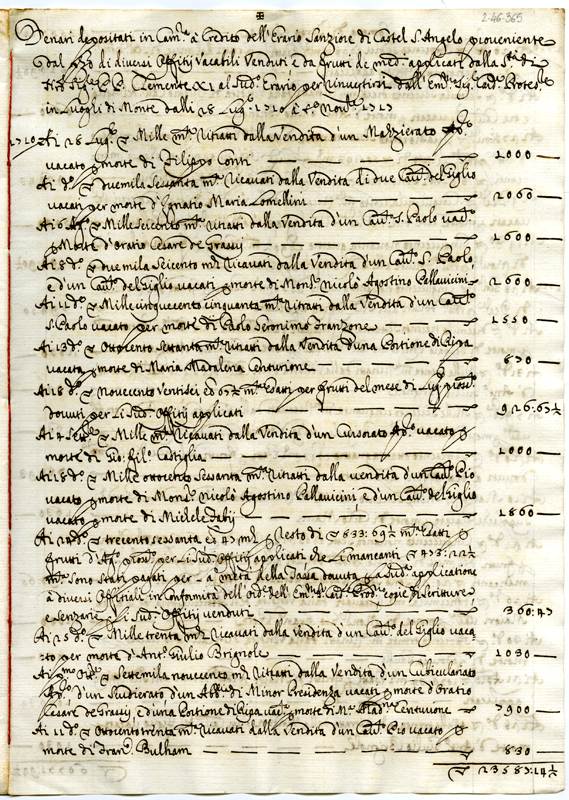 2-46-365
Denari depositati in Cam.ra a Credito dell'Erario Sanzione di Castel S. Angelo proveniente
dal di diversi Offitij Vacabili Venduti e da frutti de med. applicati dalla S.tà di
N.ro Sig.re P.P. Clemente XI al Sud.o Erario per rinvestirsi dall'Em.o Sig. Card. Protec.re
in Luoghi di Monte dalli 28 Lug.o 1710 à Nov.e 1713
1710 Ai 28 Lug.o Mille m.ta Ritratti dalla Vendita d'un Mazzierato
vacato morte di Filippo Conti 1000
Ai d.o duemila Sessanta m.ta Ricavati dalla Vendita di due Cau.ti del Giglio
vacati per morte d'Ignatio Maria Lomellini 2060
Ai 6 Ag.o Mille Seicento m.ta ritratti dalla Vendita d'un Cau.to S. Paolo vac.to
Morte d'Oratio Cesare de Grassij 1600
Ai 8 d.o duemila Seicento m.ta Ricavati dalla Vendita d'un Cau.to S. Paolo,
e d'un Cau.to del Giglio vacati morte di Mons.r Nicolò Agostino Pallavicini 2600
Ai 11 d.o Mille cinquecento cinquanta m.ta Ritratti dalla Vendita d'un Cau.to
S. Paolo vacato per morte di Paolo Geronimo Franzone 1550
Ai 13 d.o Ottocento Settanta m.ta Ritratti dalla Vendita d'una Portione di Ripa
vacata morte di Maria Madalena Centurione 870
Ai 18 d.o Novecento Ventisei e 67½ m.ta Esatti per frutti del mese di Lug.o pross.o
dovuti per li Sud. Offitij applicati 926:67½
Ai 4 Sett.e Mille m.ta Ricavati dalla Vendita d'un Cursorato vacato
morte di Gio. Fil.o Castiglia 1000
Ai 18 d.o Mille ottocento Sessanta m.ta Ritratti dalla vendita d'un Cau.to Pio
vacato morte di Mons.r Nicolò Agostino Pallavicini e d'un Cau.to del Giglio
vacato morte di Michele Fabij 1860
Ai d.o trecento sessanta e 47 m.ta Resto di 833:69½ m.ta Esatti
frutti d'Ag.o pross.o per li Sud. Offitij applicati che li mancanti 473:22½
m.ta Sono Stati pagati per la metà della Tassa dovuta Sud.a applicatione
à diversi Offitiali in Conformità dell'ord.e dell'Em.o Card. Prod. copie di Scritture
e Senzarie li Sud. Offitij venduti 360:47
Ai 25 d.o Mille trenta m.ta Ricavati dalla Vendita d'un Cau.to del Giglio vaca
to per morte d'Ant. Giulio Brignole 1030
Ai p.mo Ott.e Settemila novecento m.ta Ritratti dalla Vendita d'un Cubiculariato
d'un Scudierato d'un Abb.re di Minor Presidenza vacati morte d'Oratio
Cesare de Grassij, e d'una Portione di Ripa vac.ta morte di M.a Mad.na Centurione 7900
Ai 11 d.o Ottocento trenta m.ta Ricavati dalla Vendita d'un Cau.to Pio vacato
morte di Fran.co Bulham 830
23587:14½